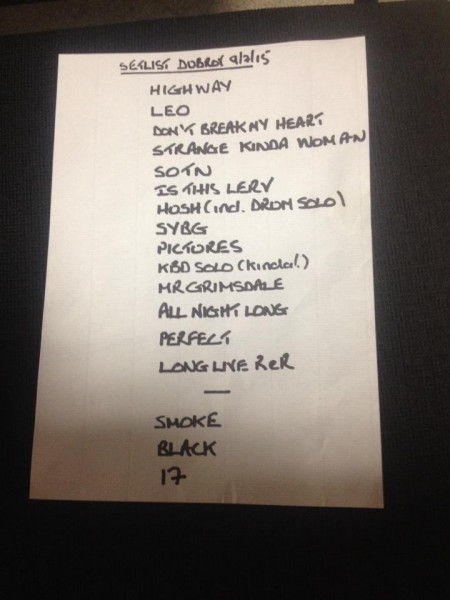 SETLIST DOBROY 9/7/15
HIGHWAY
LEO
DON'T BREAK MY HEART
STRANGE KINDA WOMAN
SOTN
IS THIS LERV
HOSH (incl. DRUM SOLO)
SYBG
PICTURES
KBD SOLO (Kinda!)
MR GRIMSDALE
ALL NIGHT LONG
PERFECT
LONG LIVE R&R
—
SMOKE
BLACK
17